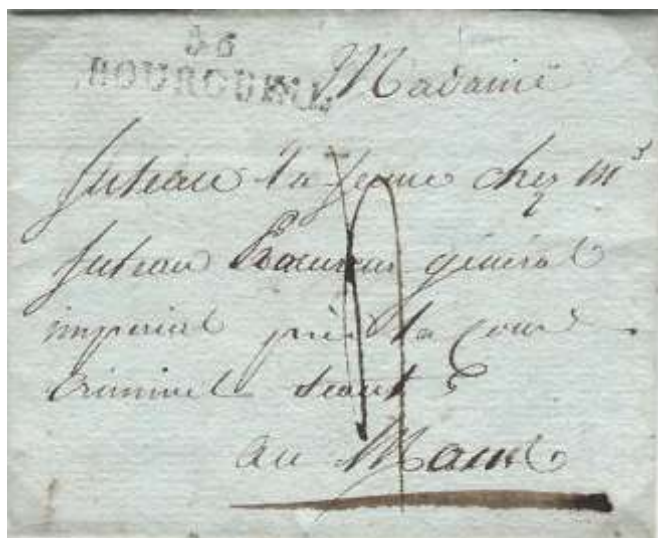 36
BOURGUEIL
Madame
Juteau La Jeune chez mr
Juteau Procureur général
imperial près la Cour
Criminel Seant
au Mans